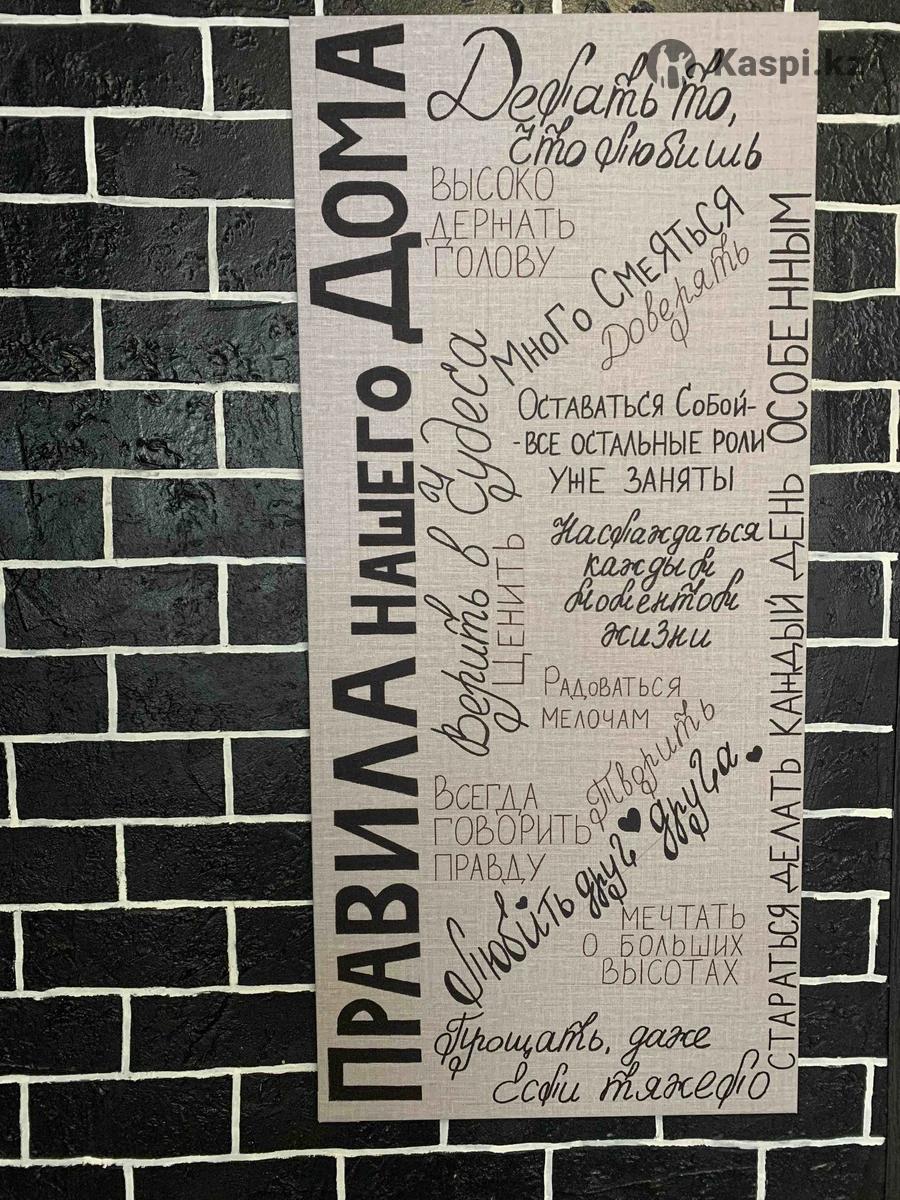 Kaspi.kz
ПРАВИЛА НАШЕГО ДОМА
Делать то,
что любишь
ВЫСОКО
ДЕРЖАТЬ
ГОЛОВУ
МНОГО СМЕЯТЬСЯ
Доверять
Верить в Чудеса
ЩЕНИТЬ
ОСТАВАТЬСЯ СОБОЙ-
-ВСЕ ОСТАЛЬНЫЕ РОЛИ
УЖЕ ЗАНЯТЫ
Наслаждаться
каждым
моментом
жизни
РАДОВАТЬСЯ
МЕЛОЧАМ
Творить
ВСЕГДА
ГОВОРИТЬ
ПРАВДУ
Любить друг друга
МЕЧТАТЬ
О БОЛЬШИХ
ВЫСОТАХ
Прощать, даже
Если тяжело
СТАРАТЬСЯ ДЕЛАТЬ КАЖДЫЙ ДЕНЬ ОСОБЕННЫМ